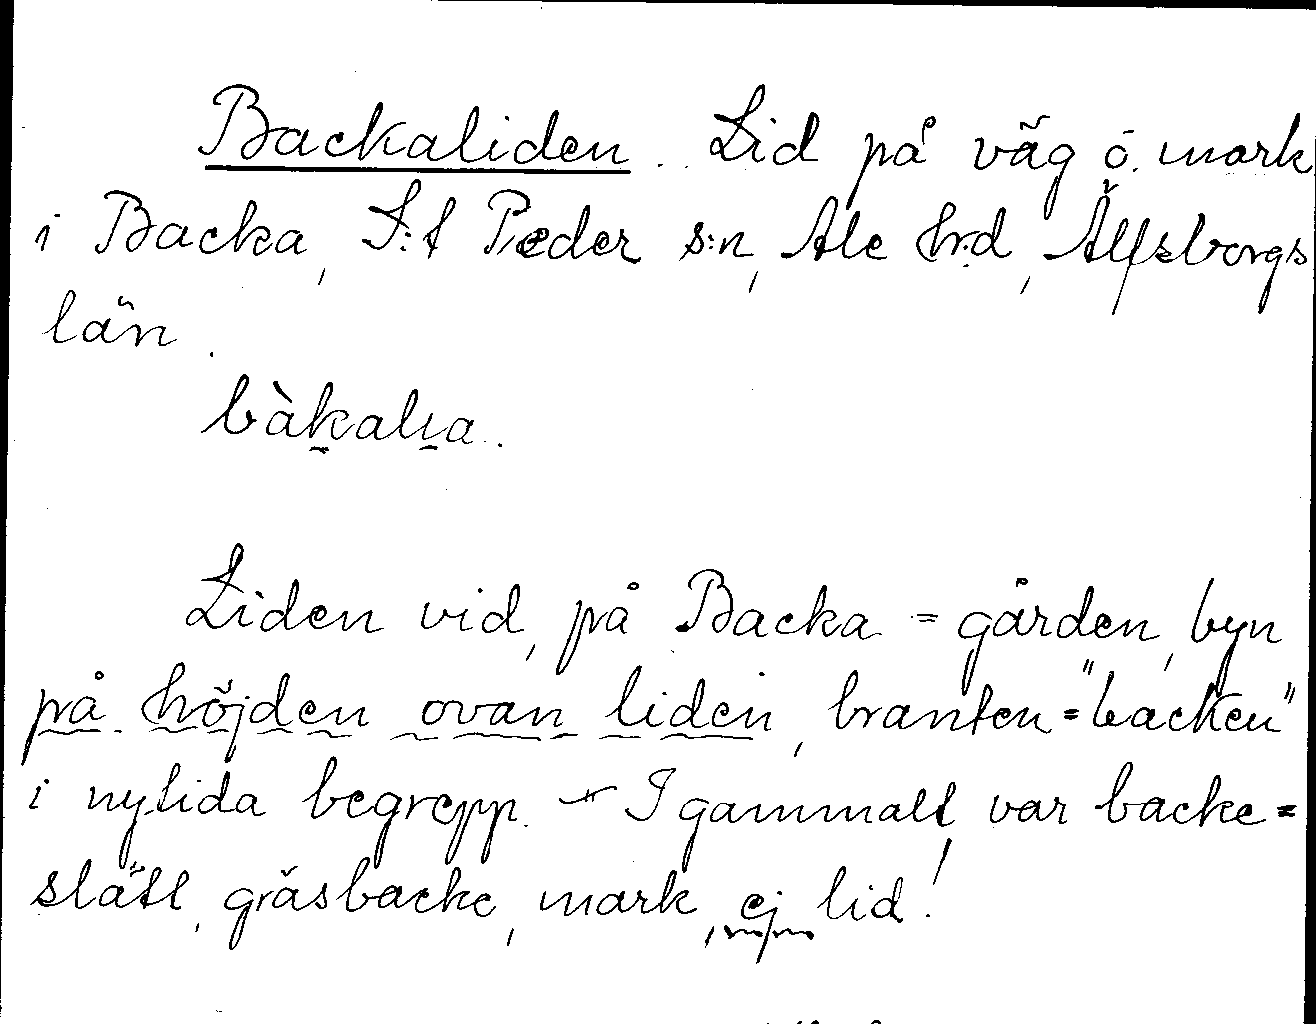 Backaliden. Lid på väg o. mark
i Backa, S:t Peder s:n, Ale hrd, Älfsborgs
län.
bàkalıa.
Liden vid, på Backa = gården, byn
på höjden ovan liden, branten = "backen"
i nytida begrepp. — I gammalt var backe =
slätt, gräsbacke, mark, ej lid!